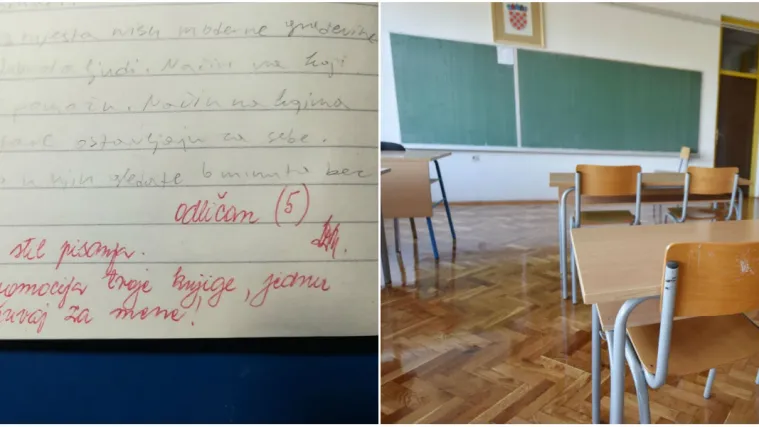 mjesta nisu moderne građevine
ljudi. Način na koji
pomažu. Način na kojima
ostavljaju za sebe.
u njih gledate 6 minuta bez
odličan (5)
stil pisanja.
romocija tvoje knjige, jednu
uvaj za mene!